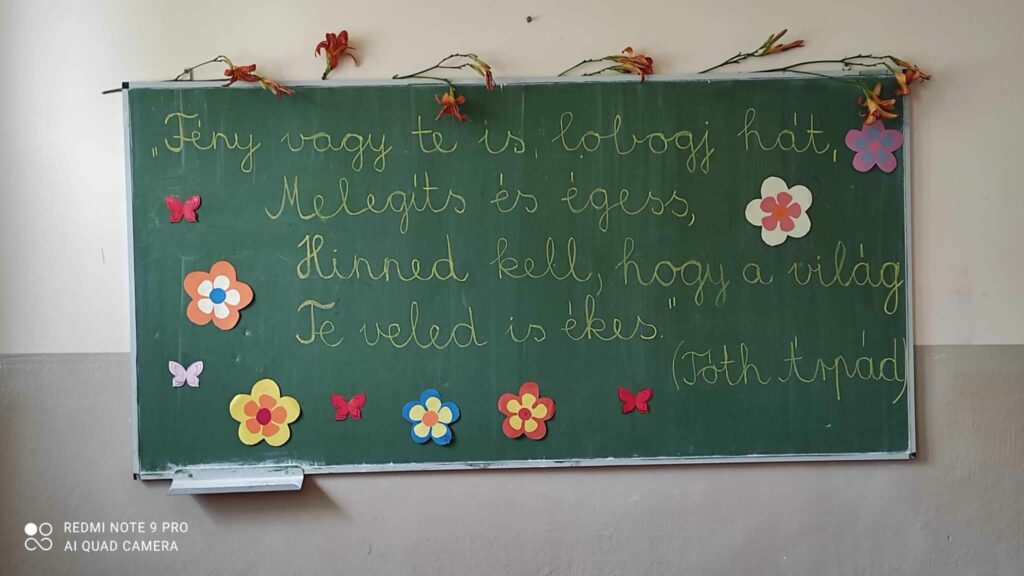 „Fény vagy te is, lobogj hát,
Melegíts és égess,
Hinned kell, hogy a világ
Te veled is ékes."
(Tóth Árpád)
REDMI NOTE 9 PRO
AI QUAD CAMERA